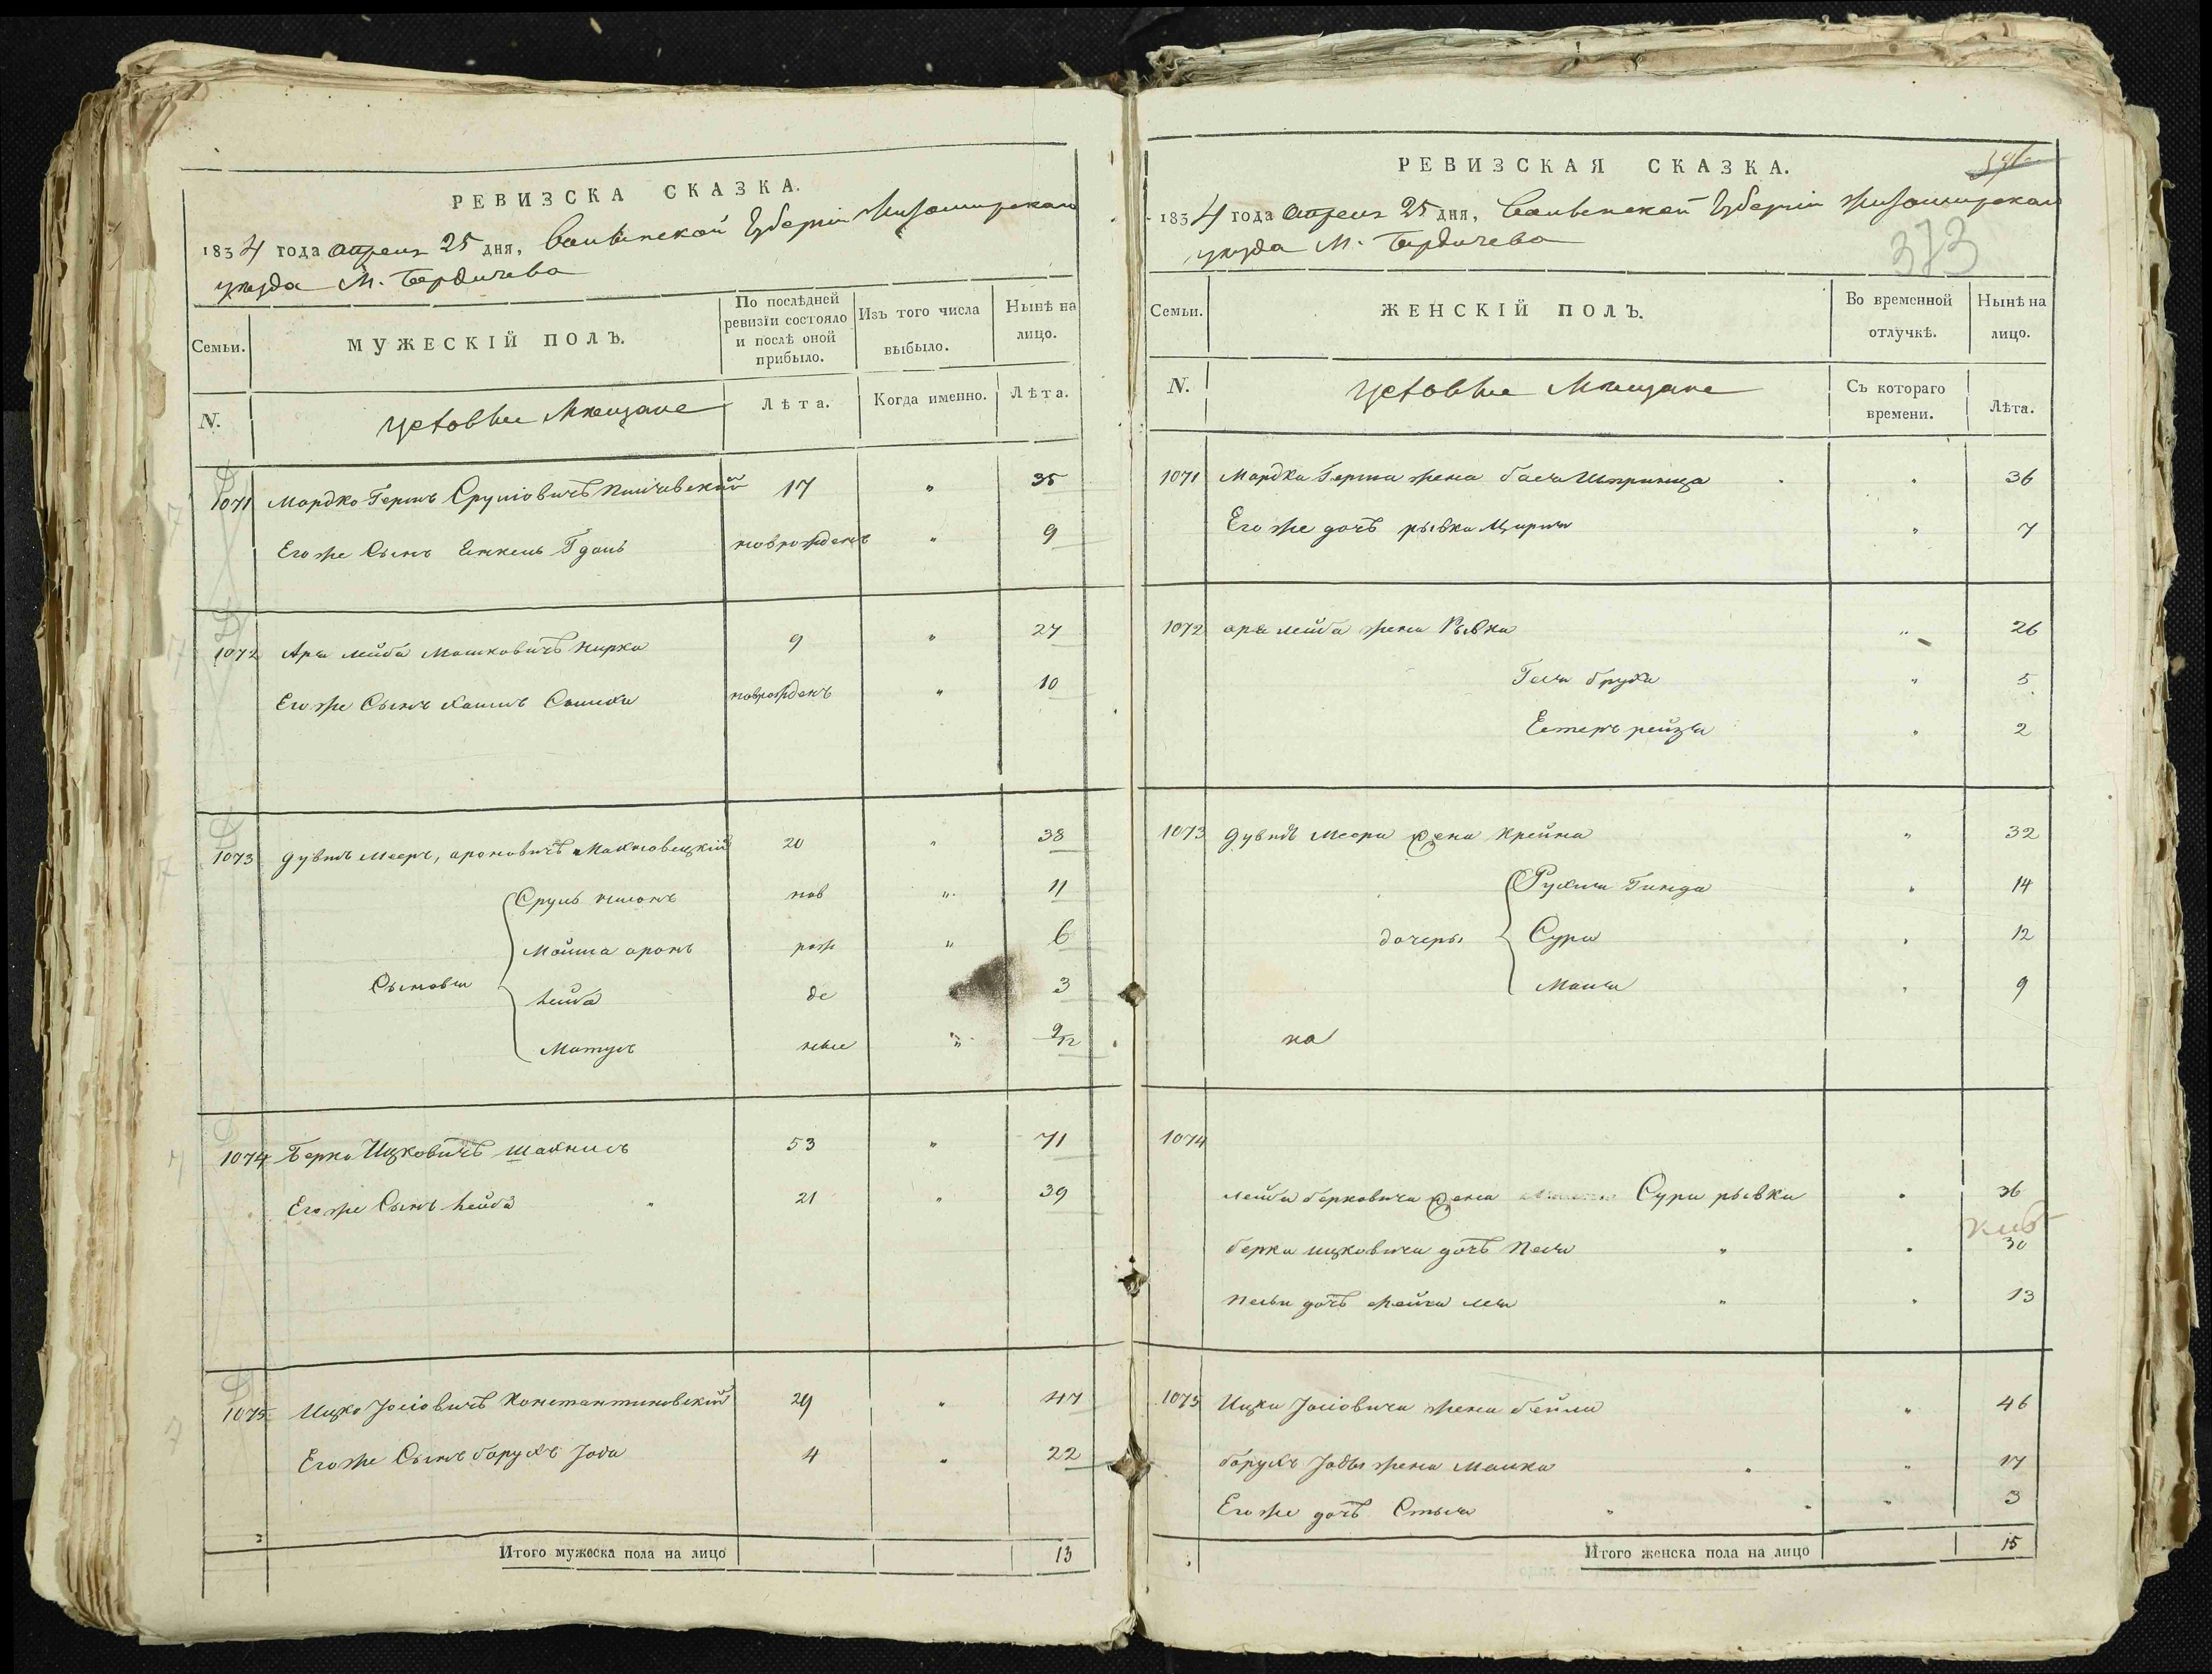 РЕВИЗСКА СКАЗКА.
1834 года Апреля 25 дня, Волынской Губерніи Житомирскаго
уезда М. Бердичева
Семьи.
МУЖЕСКІЙ ПОЛЪ.
По послѣдней ревизіи состояло и послѣ оной прибыло.
Изъ того числа выбыло.
Нынѣ на лицо.
N.
Мещане
Лѣта.
Когда именно.
Лѣта.
1071 Мордко Гершъ Сруліовичъ 17 " 35
Его же Сынъ новрожденъ " 9
1072 Аръ лейба Мошковичъ Кирка 9 " 27
Его же Сынъ новрожденъ " 10
1073 Дувидъ Мееръ, ароновичъ Махновецкій 20 " 38
Сруль нов " 11
Мойша аронъ рож " 6
Сыновья
лейба де 3
Матусъ ные " 9/12
1074 Берко Ицковичъ 53 " 71
Его же Сынъ лейба " 21 " 39
1075 Ицко Іосіовичъ Константиновскій 29 " 47
Его же Сынъ борухъ Іода 4 " 22
Итого мужеска пола на лицо 13
РЕВИЗСКАЯ СКАЗКА.
1834 года Апреля 25 дня, Волынской Губерніи Житомирскаго
уезда М. Бердичева
373
Семьи.
ЖЕНСКІЙ ПОЛЪ.
Во временной отлучкѣ.
Нынѣ на лицо.
N.
Мещане
Съ котораго времени.
Лѣта.
1071 Мордка Герша жена бася Шпринца " 36
Его же дочъ рывка Цирля " 7
1072 аръ лейба жена Рывка " 26
Геся бруха " 5
Естеръ рейзя " 2
1073 Дувидъ Меера жена Крейна " 32
Рухля Гинда " 14
дочеры Сура " 12
Маля " 9
на
1074
лейба берковича жена Сура рывка " 36
берка ицковича дочъ Песя " " 30
Песьи дочъ " " 13
1075 Ицка Іосіовича жена бейла " 46
борухъ Іоды жена Малка " " 17
Его же дочъ " " " 3
Итого женска пола на лицо 15